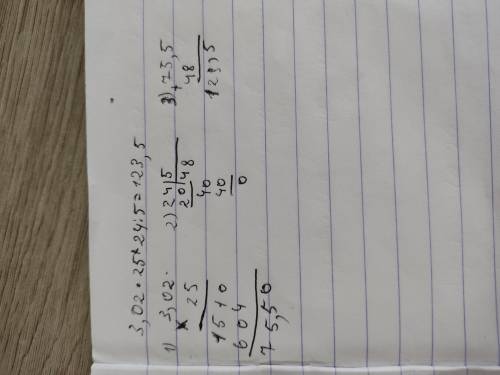 3,02 · 25 + 24:5 = 123,5
1) 3,02
× 25
1510
604
75,50
2) 24 5
20 48
40
40
0
3) 75,5
48
123,5